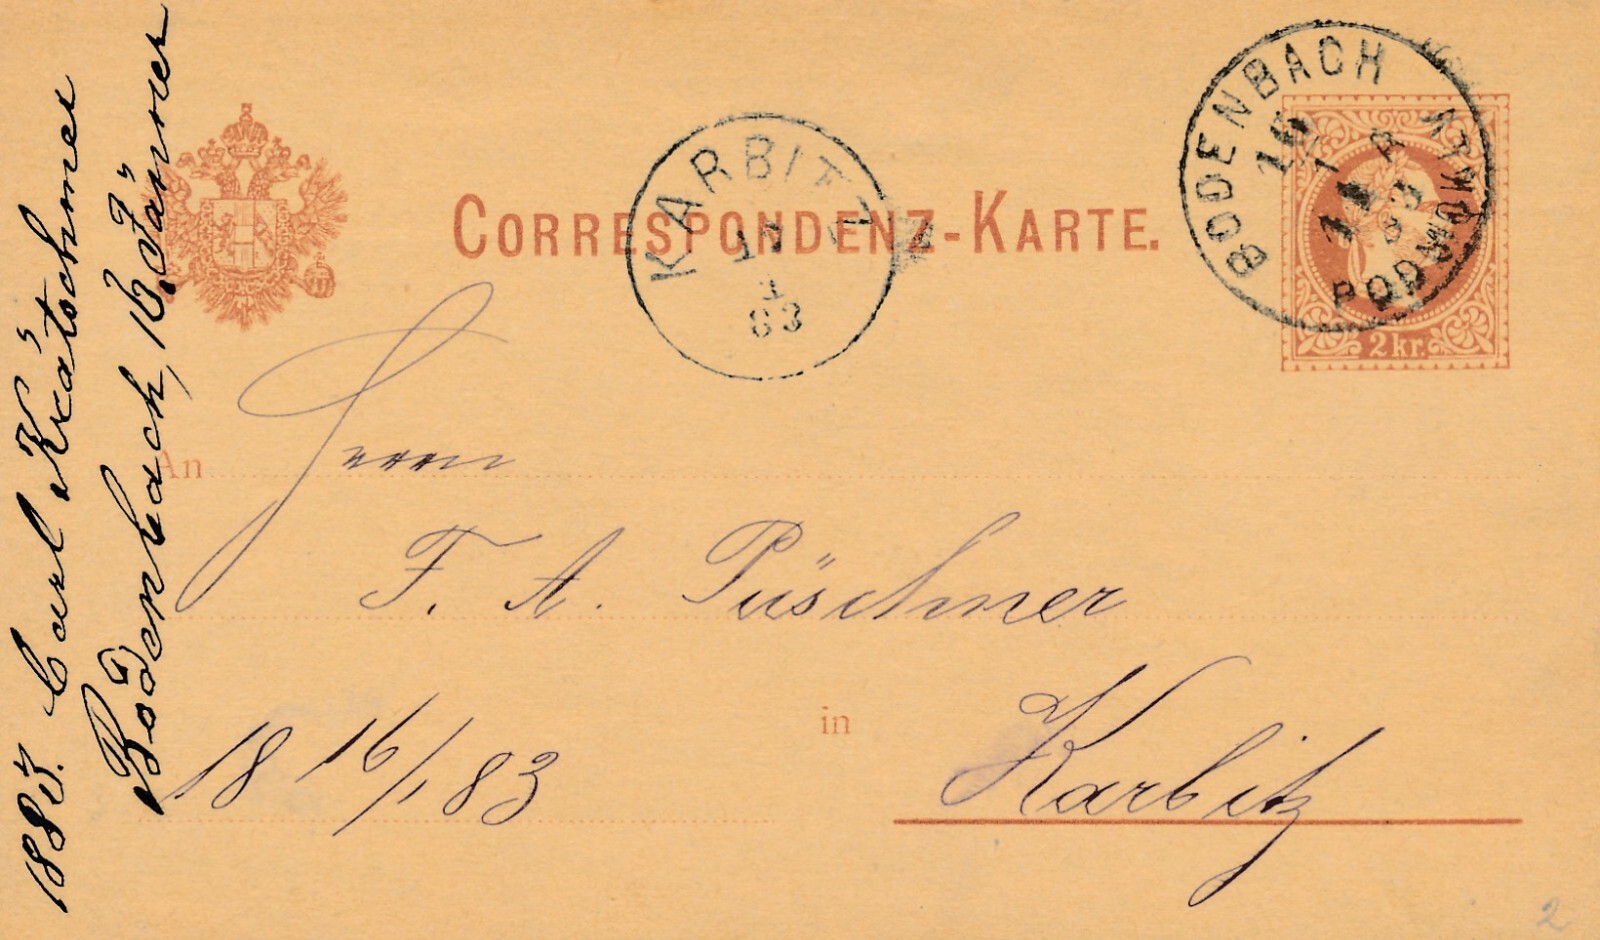 1883. Carl Kratochmer
Bodenbach, 18. Jänner
CORRESPONDENZ-KARTE.
KARBITZ
1
83
BODENBACH
16
1
83
PODMOKLY
2 kr.
An Herrn
F. A. Püschner
18 16/1 83
in Karbitz
2